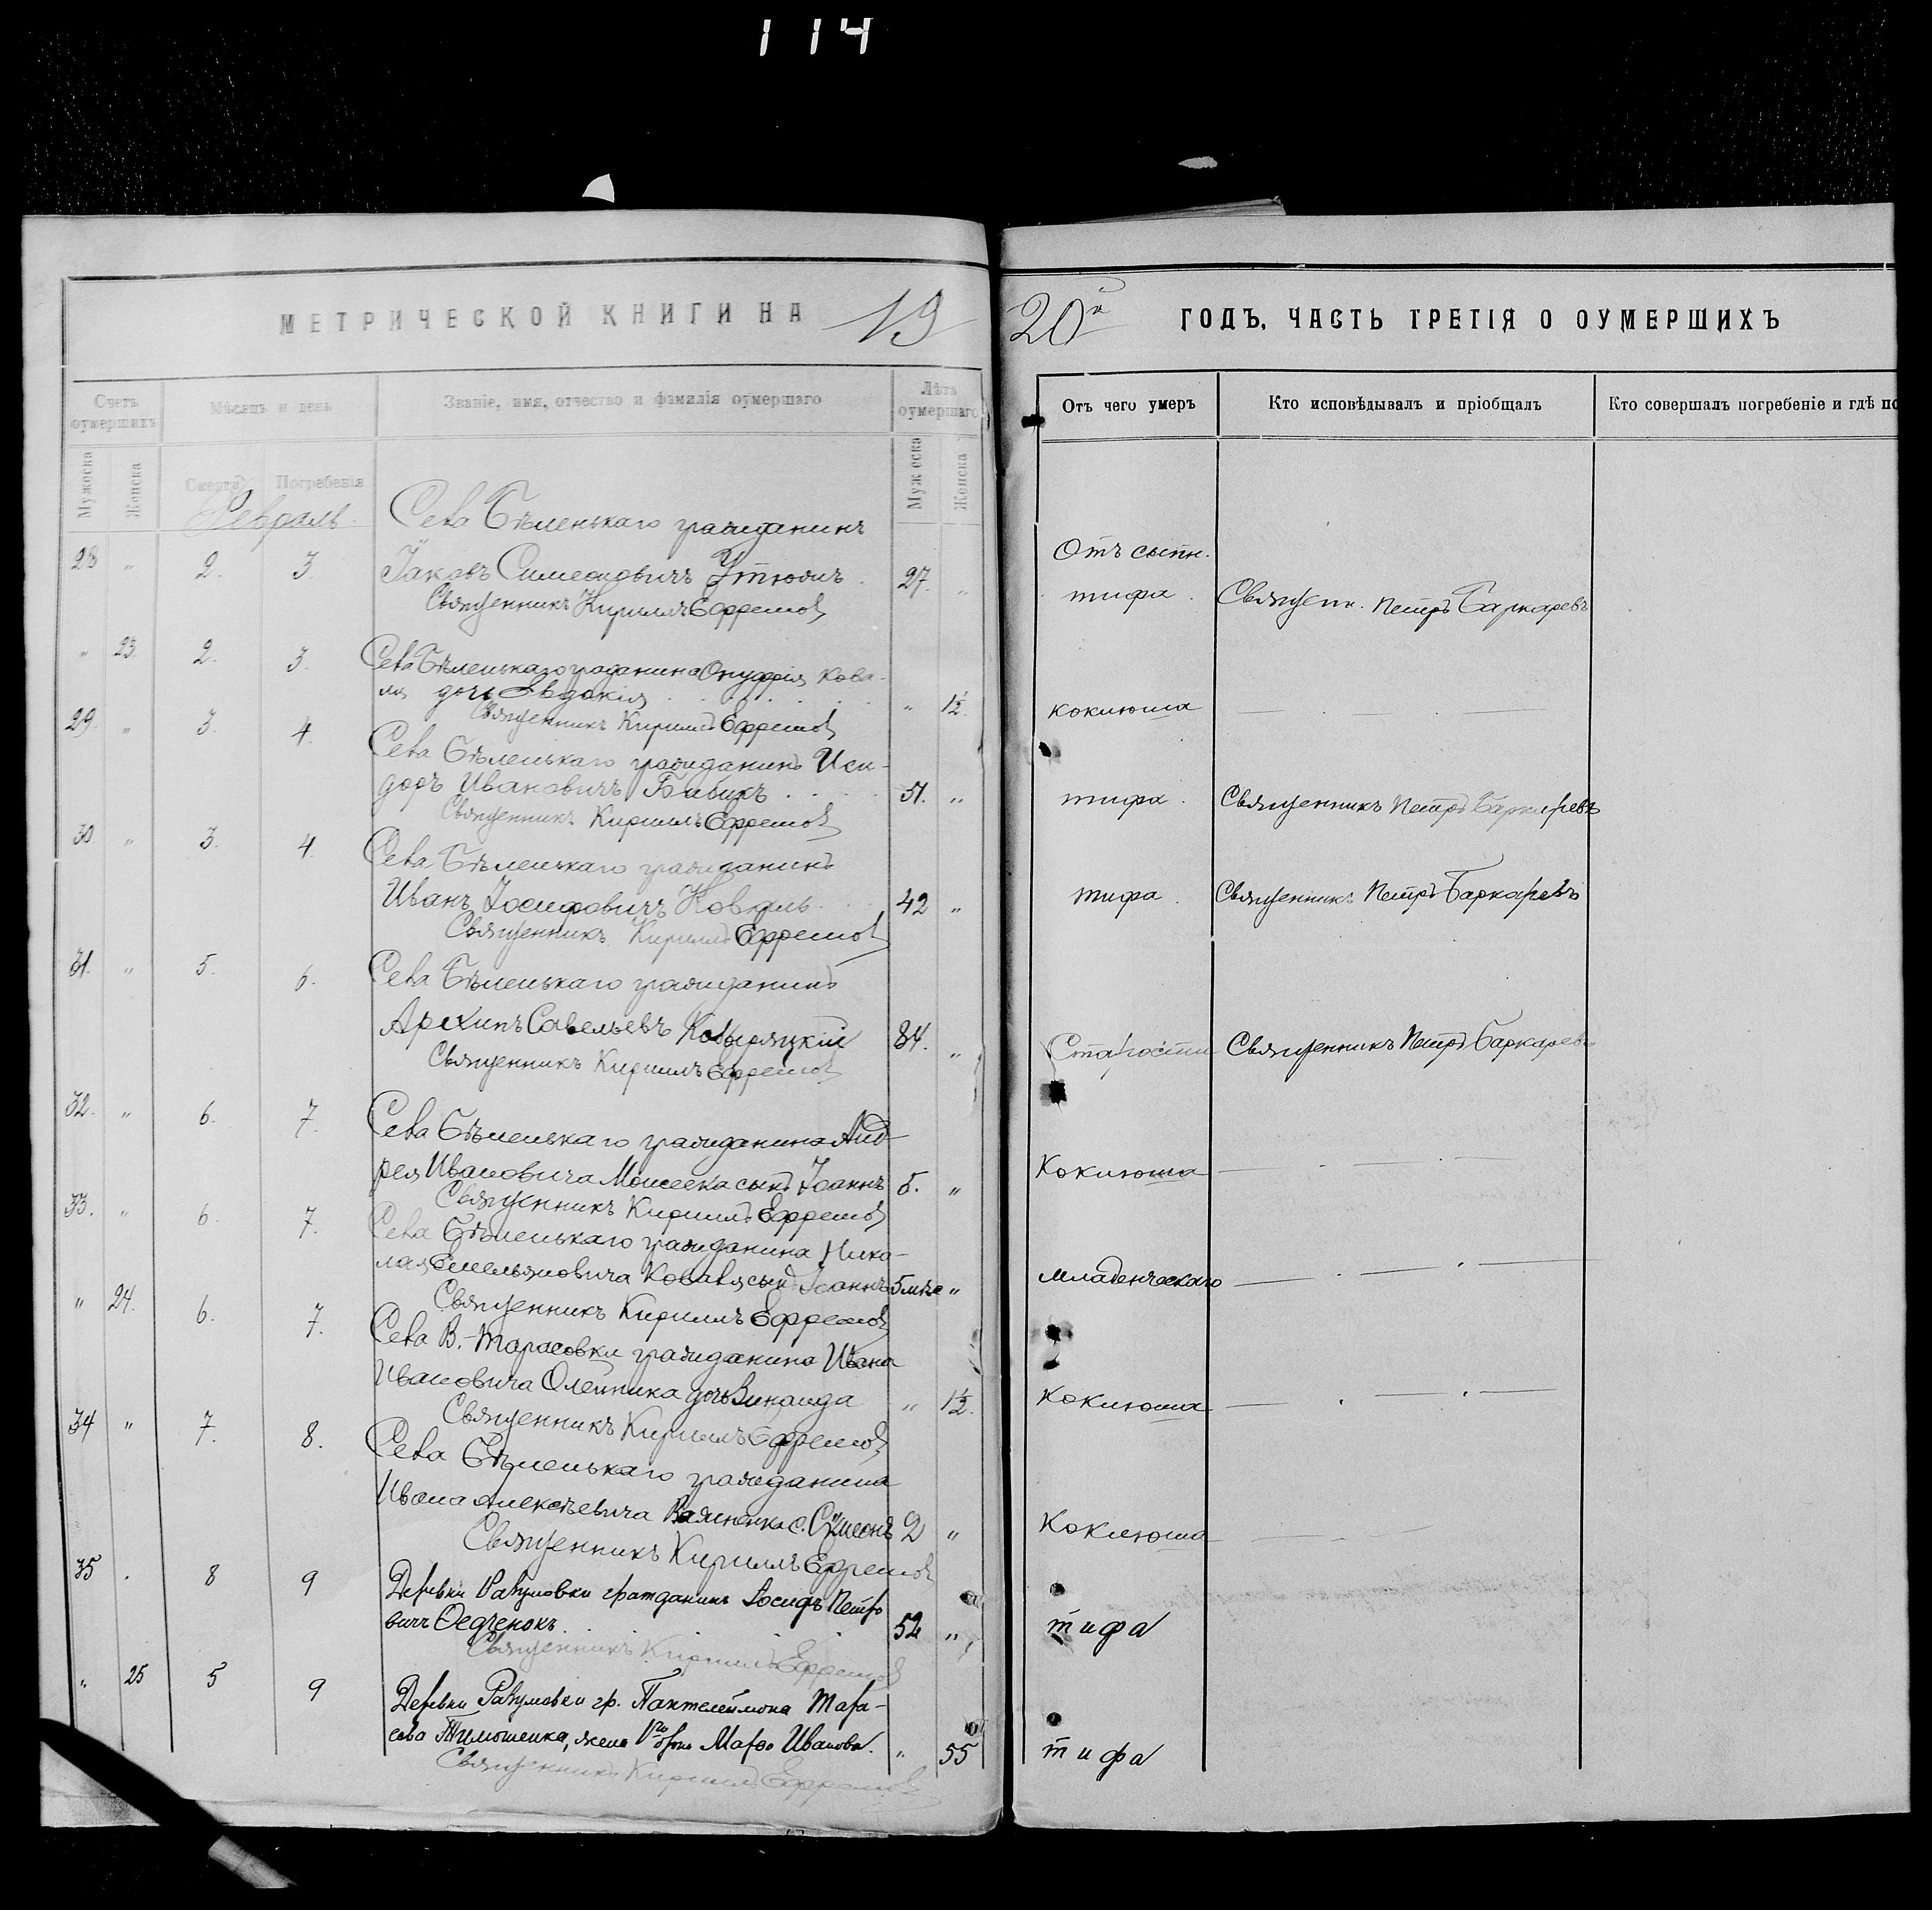 114
МЕТРИЧЕСКОЙ КНИГИ НА 19
20й ГОДЪ, ЧАСТЬ ТРЕТІЯ О ОУМЕРШИХЪ
Счетъ оумершихъ
Мѣсяцъ и день
Званіе, имя, отчество и фамилія оумершаго
Лѣта оумершаго
Мужеска
Женска
Смерти
Погребенія
Мужеска
Женска
Отъ чего умеръ
Кто исповѣдывалъ и пріобщалъ
Кто совершалъ погребеніе и гдѣ по
Февраль
Села Бѣленькаго гражданинъ
28 " 2. 3. Іаковъ Симеоновичъ 27. "
Священникъ Кириллъ Ефремов
Отъ сыпн.
тифа. Священ. Петръ Баркаревъ
" 23. 2. 3. Села Бѣленькаго граданина Онуфрія Кова-
ля дочь Евдокія " 1½.
Священникъ Кириллъ Ефремов
коклюша
29. " 3. 4. Села Бѣленькаго гражданинъ Иси-
доръ Ивановичъ Бабикъ 51. "
Священникъ Кириллъ Ефремов
тифа. Священникъ Петръ Баркаревъ
30. " 3. 4. Села Бѣленькаго гражданинъ
Иванъ Іосифовичъ Коваль 42 "
Священникъ Кириллъ Ефремов
тифа. Священникъ Петръ Баркаревъ
31. " 5. 6. Села Бѣленькаго гражданинъ
Архипъ Савельевъ 84. "
Священникъ Кириллъ Ефремов
Старости Священникъ Петръ Баркаревъ
32. " 6. 7. Села Бѣленькаго гражданина Анд-
рея Ивановича Моисеека сынъ Іоаннъ 5. "
Священникъ Кириллъ Ефремов
Коклюша
33. " 6. 7. Села Бѣленькаго гражданина Нико-
лая Емельяновича Коваля сынъ Іоаннъ 5 мѣс "
Священникъ Кириллъ Ефремов
младенческаго
" 24. 6. 7. Села В.-Тарасовки гражданина Ивана
Ивановича Олейника дочь Зинаида " 1½.
Священникъ Кириллъ Ефремов
коклюша
34 " 7. 8. Села Бѣленькаго гражданина
Ивана Алексѣевича с. Симеонъ 2 "
Священникъ Кириллъ Ефремов
Коклюша
35 . 8 9 Деревни Разумовки гражданинъ Іосифъ Петро
вичъ Ѳедченокъ 52 "
Священникъ Кириллъ Ефремов
тифа
" 25 5 9 Деревни Разумовки гр. Пантелеймона Тара-
сова Тимошенка, жена Марѳа Иванова. " 55
Священникъ Кириллъ Ефремов
тифа